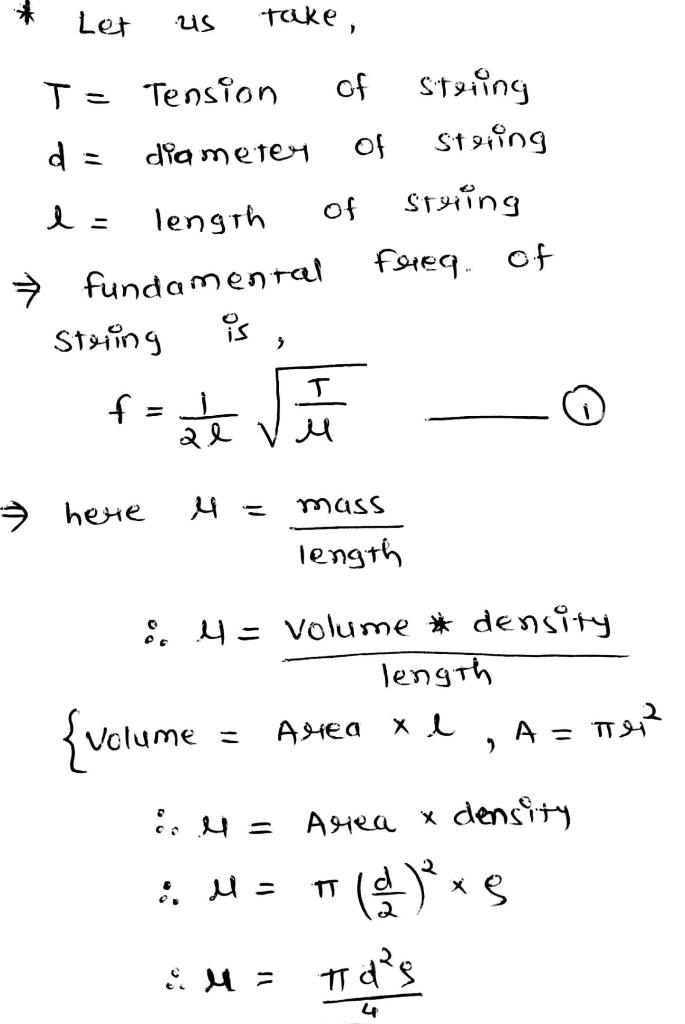 * Let us take,
T = Tension of string
d = diameter of string
l = length of string
⇒ fundamental freq. of
string is,
f = 1/2l √(T/μ) ——— ①
⇒ here μ = mass/length
∴ μ = Volume * density/length
{Volume = Area × l, A = πr²
∴ μ = Area × density
∴ μ = π (d/2)² × ρ
∴ μ = πd²ρ/4